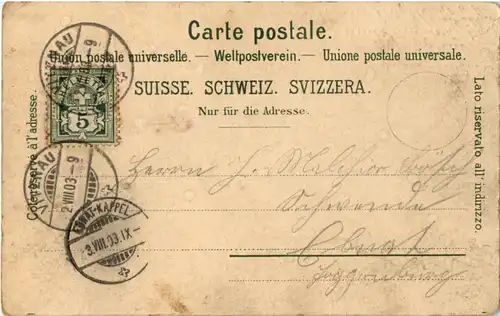 Carte postale.
Union postale universelle. — Weltpostverein. — Unione postale universale.
SUISSE. SCHWEIZ. SVIZZERA.
Nur für die Adresse.
Côté réservé à l'adresse.
Lato riservato all' indirizzo.
5
2.VIII.03.-9
EBNAT-KAPPEL
3.VIII.03.IX
Herrn J. Melchior
Schwende
Ebnat
Toggenburg